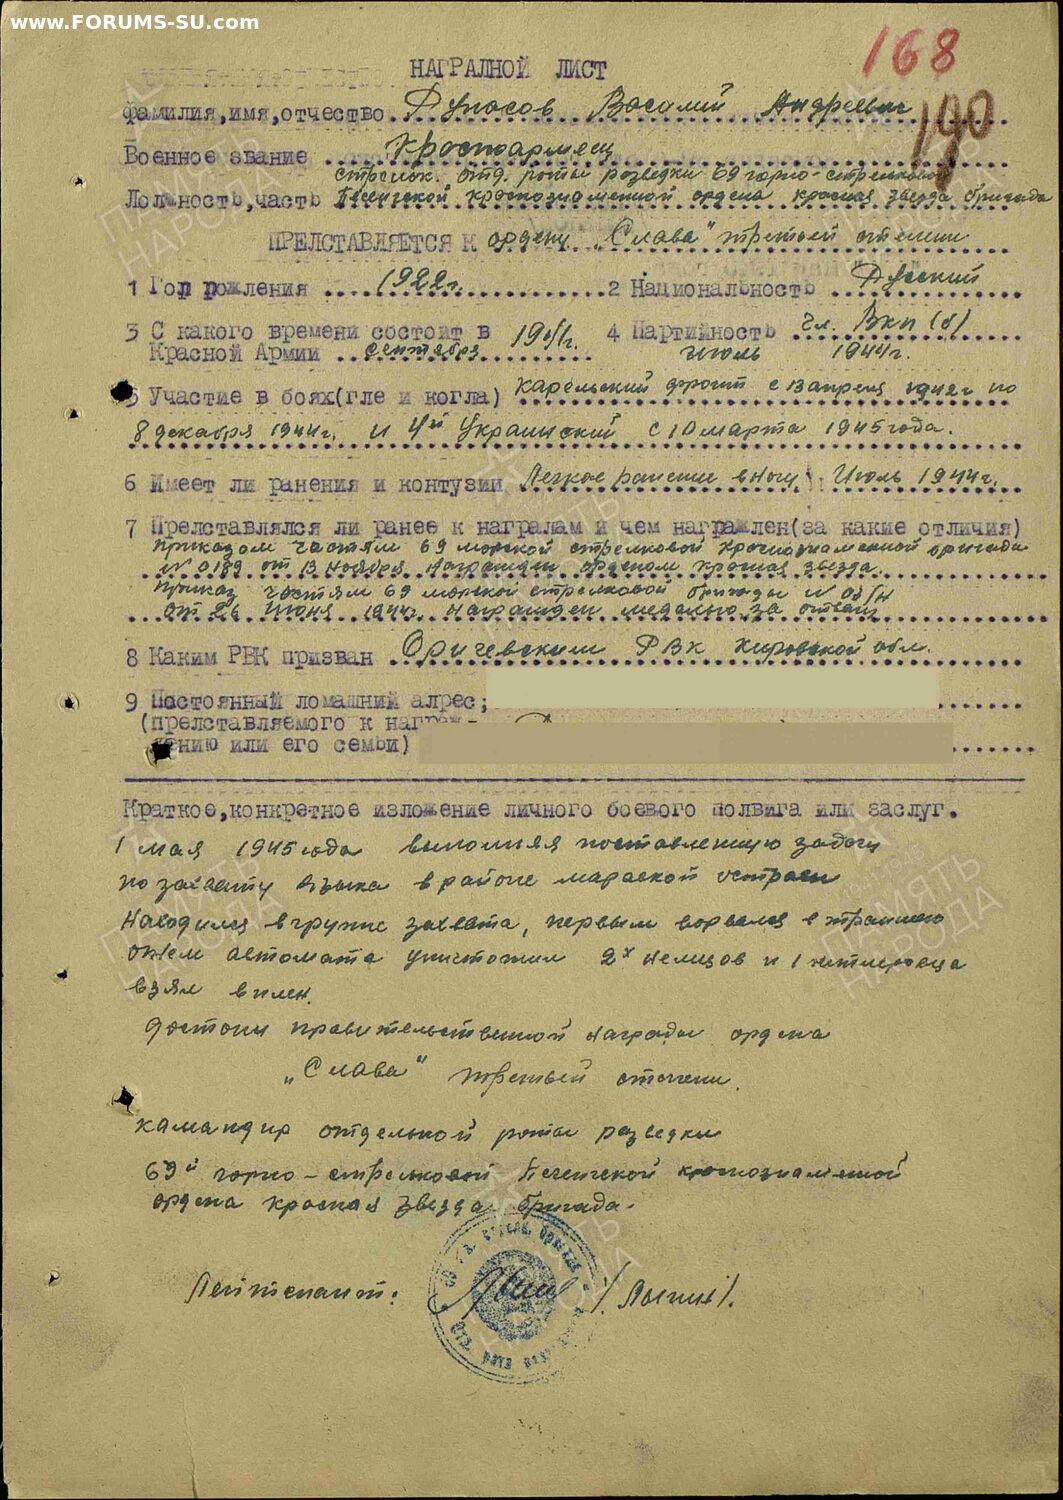 www.FORUMS-SU.com
168
190
НАГРАДНОЙ ЛИСТ
Фамилия,имя,отчество Василий Андреевич
Военное звание Красноармеец
стрелок. отд. роты разведки 69 горно-стрелковой
Должность,часть Печенгской краснознаменной ордена красная звезда бригада
ПРЕДСТАВЛЯЕТСЯ К ордену „Слава" третьей степени
1 Год рождения 1922г. 2 Национальность Русский
3 С какого времени состоит в 1941г. 4 Партийность чл. ВКП(б)
Красной Армии сентябрь июль 1944г.
5 Участие в боях(где и когда) Карельский фронт с 13 апреля 1942г по
8 декабря 1944г. и 4й Украинский с 10 марта 1945 года.
6 Имеет ли ранения и контузии Легкое ранение в ногу Июль 1944г.
7 Представлялся ли ранее к наградам и чем награжден(за какие отличия)
Приказом частям 69 морской стрелковой краснознаменной бригады
№ 0189 от 13 ноября награжден орденом красная звезда.
Приказ частям 69 морской стрелковой бригады №
от 26 Июня 1944г. награжден медалью за отвагу
8 Каким РВК призван Оричевским РВК Кировской обл.
9 Постоянный домашний адрес;
(представляемого к награж-
дению или его семьи)
Краткое,конкретное изложение личного боевого подвига или заслуг.
1 мая 1945 года выполняя поставленную задачу
по захвату языка в районе
находился в группе захвата, первым ворвался в траншею
огнем автомата уничтожил 2х немцов и 1 гитлеровца
взял в плен.
достоин правительственной награды ордена
„Слава" третьей степени.
командир отдельной роты разведки
69й горно-стрелковой Печенгской краснознаменной
ордена красная звезда бригада.
Лейтенант: